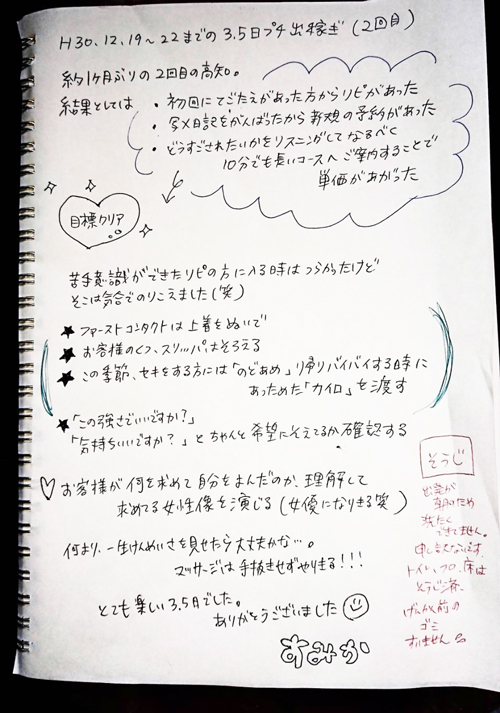 H30.12.19〜22までの3.5日プチ出稼ぎ(2回目)
約1ヶ月ぶりの2回目の高知。
結果としては
・初回にてごたえがあった方からリピがあった
・写メ日記をがんばったから新規の予約があった
・どうすごされたいかをリスニングしてなるべく
10分でも長いコースへご案内することで
単価があがった
目標クリア
苦手意識ができたリピの方に入る時はつらかったけど
そこは気合でのりこえました(笑)
★ファーストコンタクトは上着をぬいで
★お客様のくつ、スリッパはそろえる
★この季節、セキをする方には「のどあめ」帰りバイバイする時に
あっためた「カイロ」を渡す
★「この強さでいいですか?」
「気持ちいいですか?」とちゃんと希望にそえてるか確認する
♡お客様が何を求めて自分をよんだのか理解して
求めてる女性像を演じる(女優になりきる笑)
何より、一生けんめいさを見せたら大丈夫かな…。
マッサージは手抜きせずやりきる!!!
とても楽しい3.5日でした。
ありがとうございました☺
あみか
そうじ
出発が
朝のため
洗たく
できてません。
申し訳ないです。
トイレ、フロ、床は
そうじ済。
げんかん前の
ゴミ
すいません